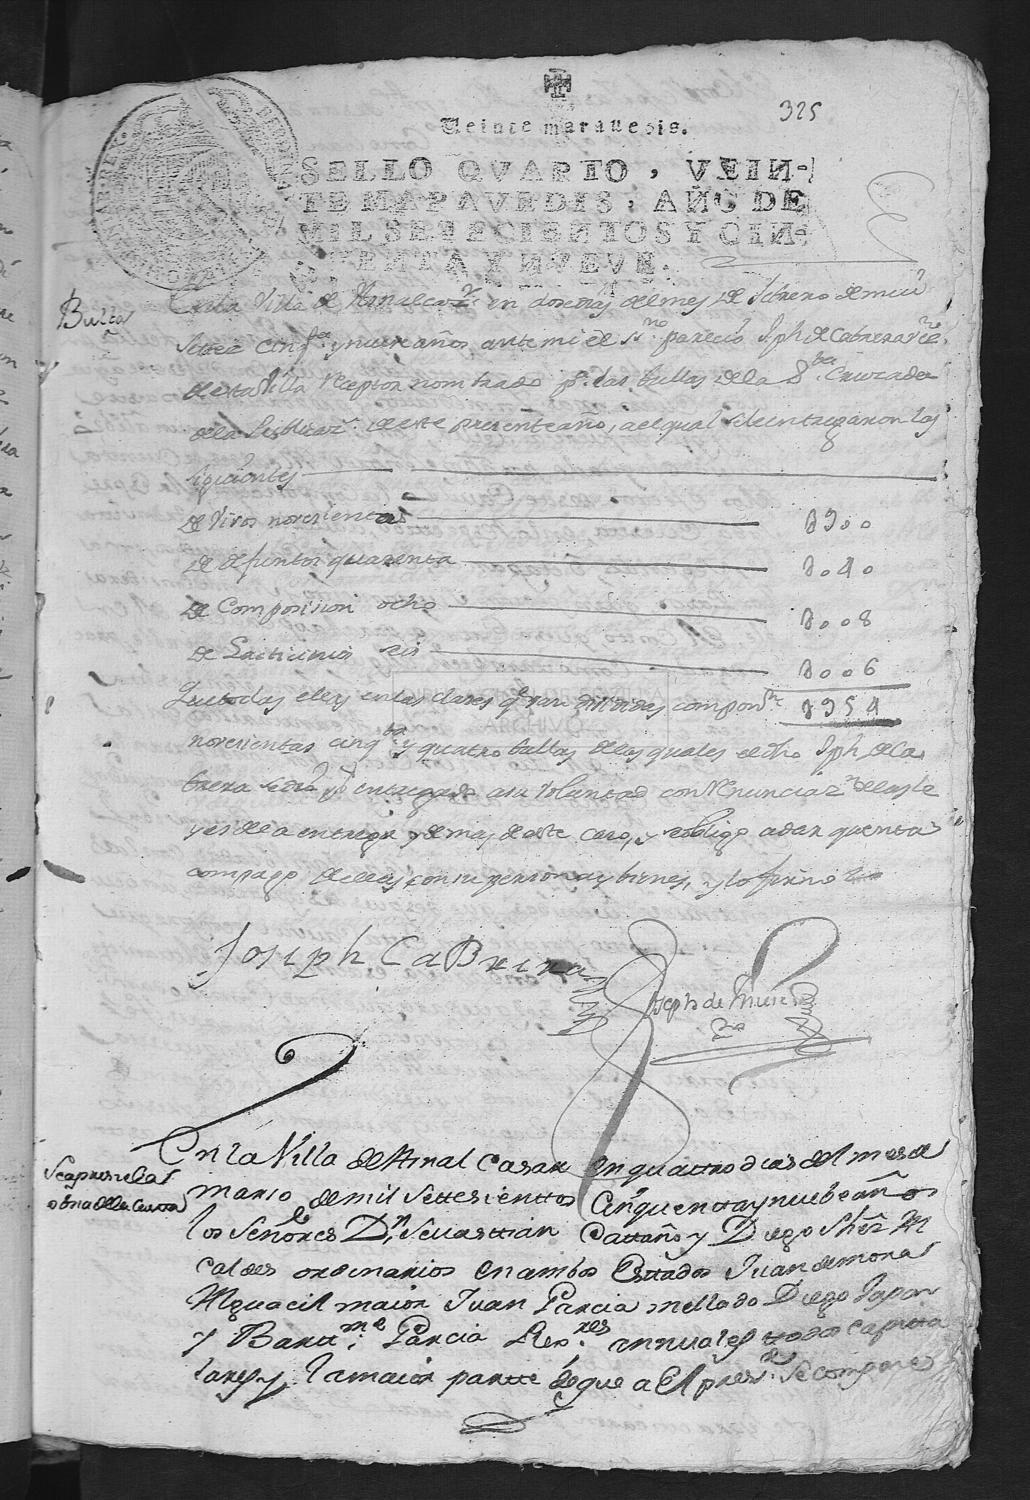 325
Veinte maravedis.
SELLO QVARTO, VEIN-
TE MARAVEDIS, AÑO DE
MIL SETECIENTOS Y CIN-
QVENTA Y NVEVE.
Bullas
En la Villa de Hinalcazr en dose dias del mes de febrero de mill
Settes cinqta y nueve años ante mi el Ssno parecio Jph de Cabrera vzno
de esta Villa Receptor nombrado pa las bullas de la Sta Cruzada
de la de este presente año, a el qual se le entregaron las
siguientes
de Vivos novesientas 8900
de defuntos quarenta 8040
de Composision ocho 8008
de Lacticinios seis 8006
Que todas ellas en las clases qe van divididas componen 8954
novesientas cinqta y quatro bullas de las quales el dho Jph de Ca
brera se dio por entregado a su Voluntad con Renunciazn de leyes
y es de la entrega y demas de este caso, y se obligo a dar quenta
con pago de ellas con su persona y bienes, y lo firmo
Joseph CaBrera
Joseph de
Se apresie las
obra de la
En la Villa de Hinal Casar en quattro dias del mes de
marso de mil settesienttos Cinquentta y nuebe años
los Señores Dn Sevasttian Cattaño y Diego Shes Al
caldes ordinarios en ambos Esttados Juan de moras
Alguacil maior Juan Garcia mellado Diego Japon
y Barttme Garcia Rexres annuales ttodos capittu
lares y la maior partte de que a El presste se compone